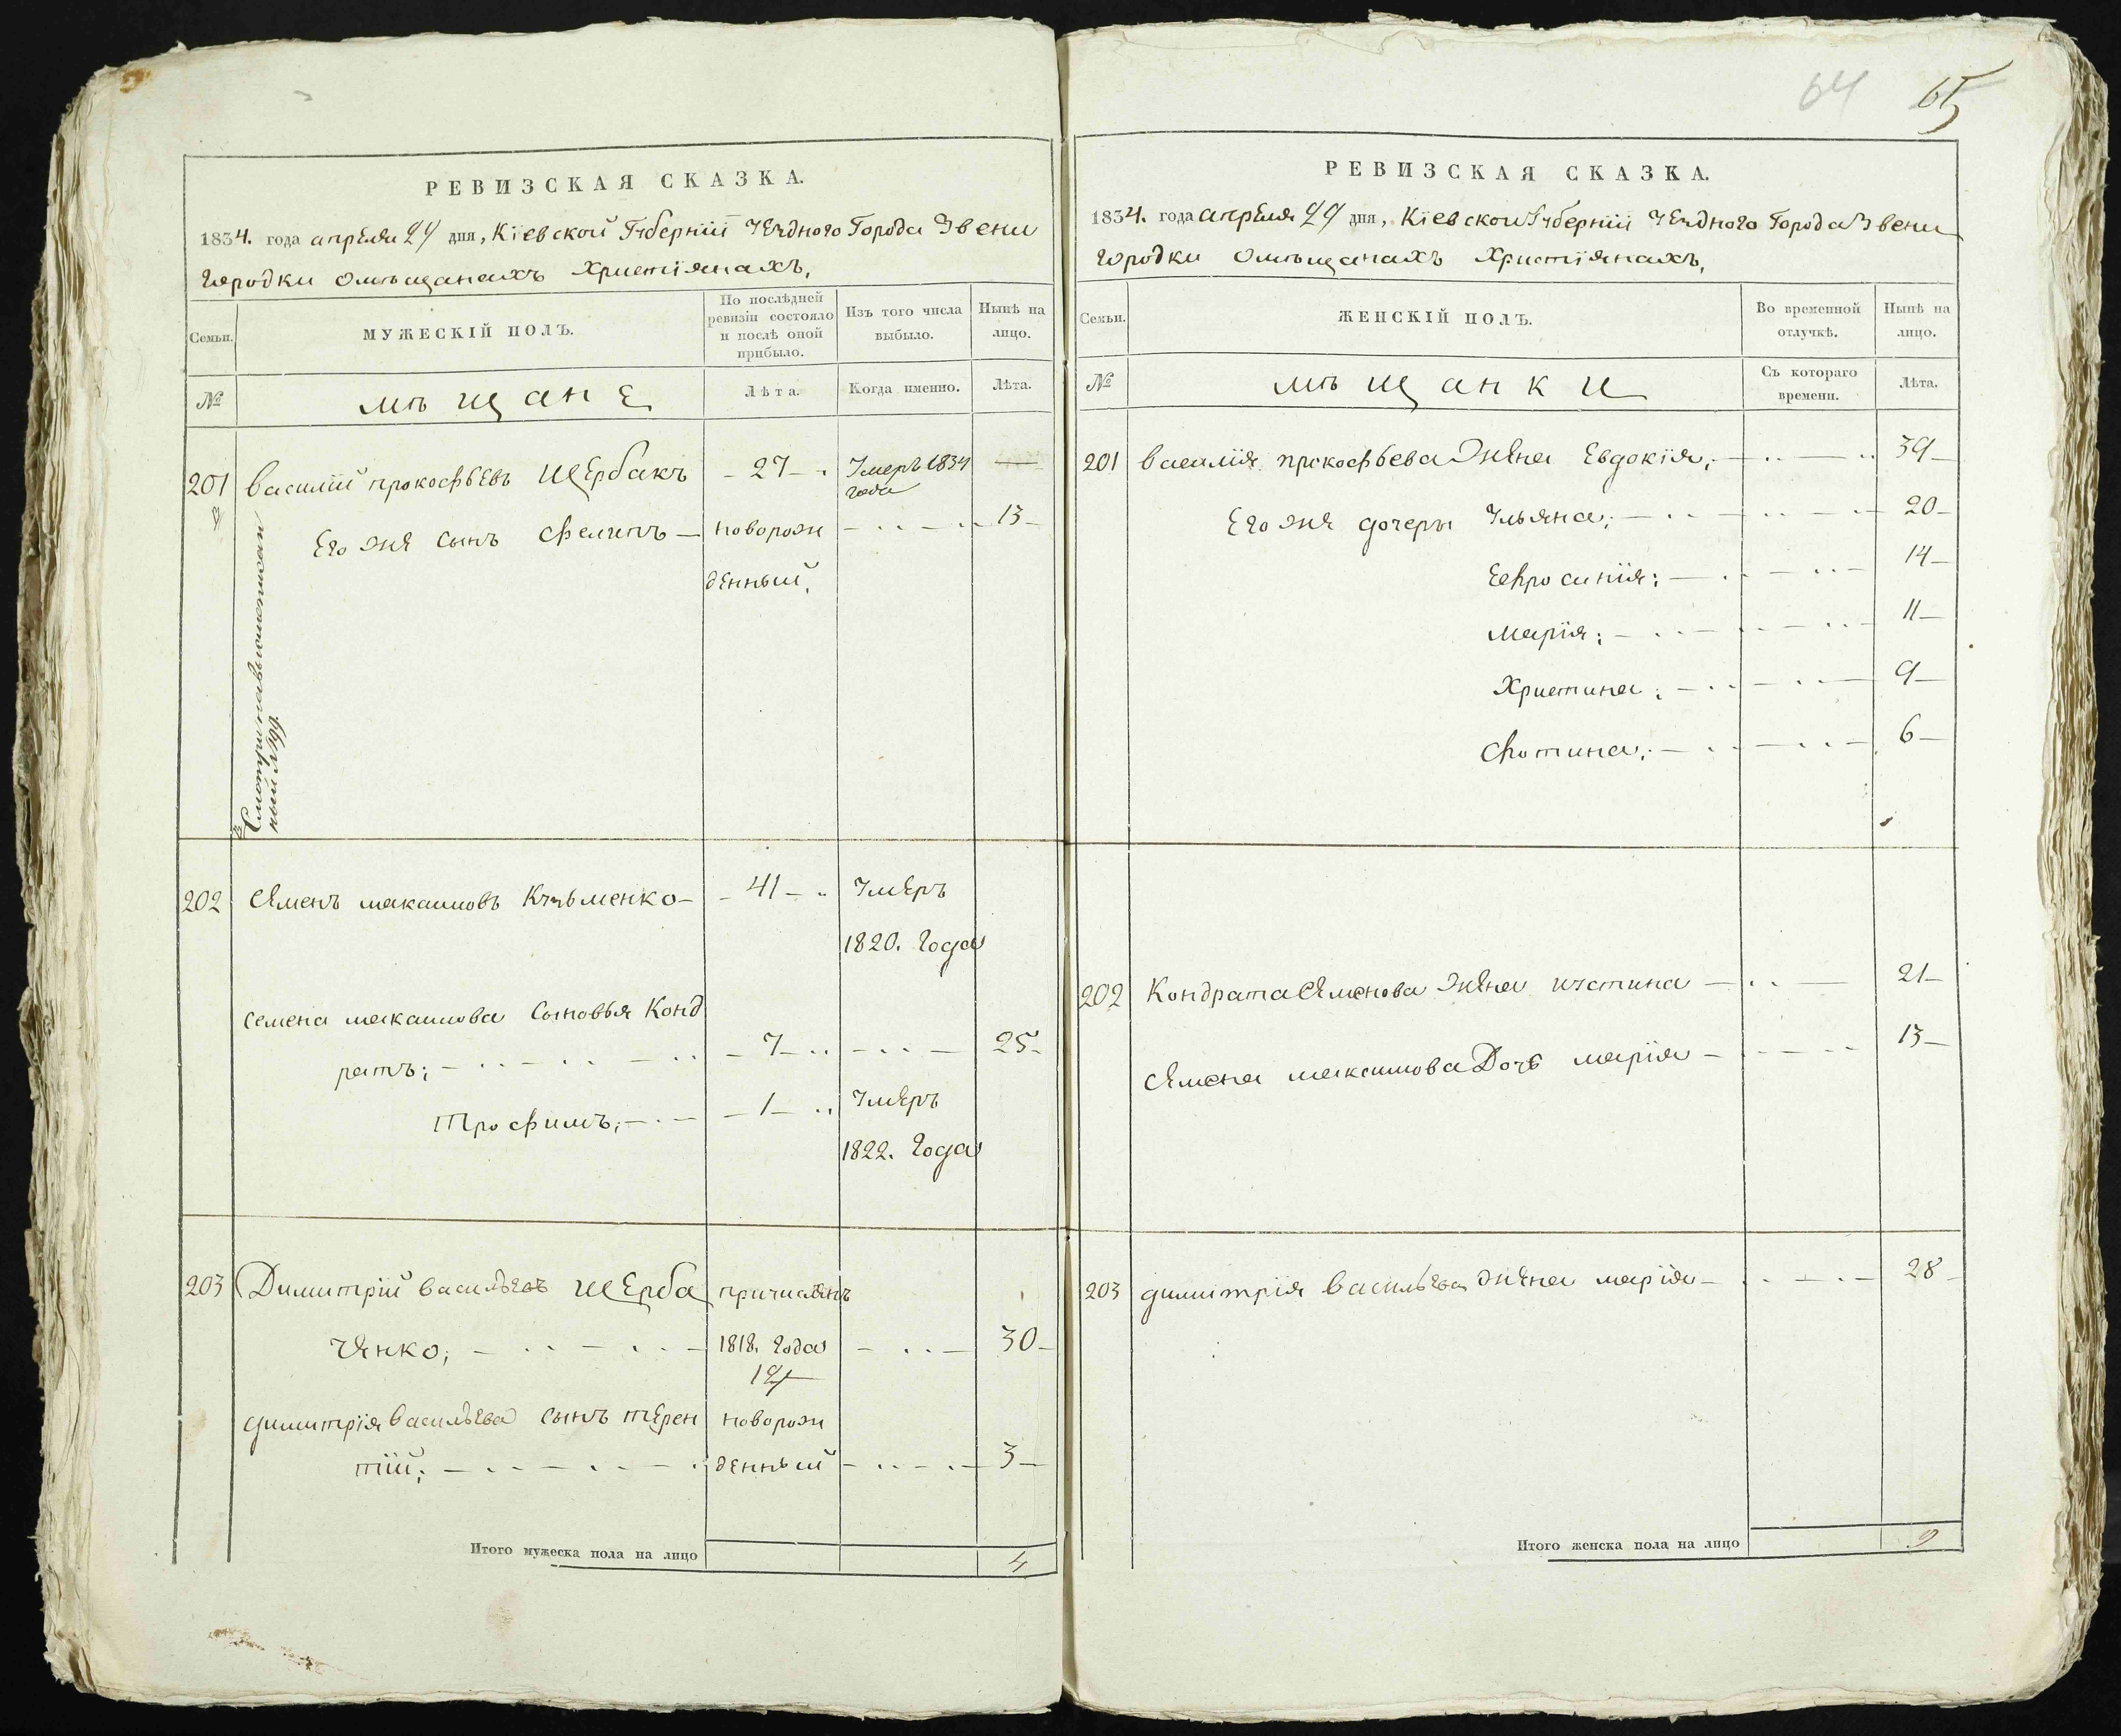 64 65
РЕВИЗСКАЯ СКАЗКА.
1834. года апреля 24 дня, Кіевской Губерніи Уезднаго Города Звени
городки омѣщанахъ Христіянахъ,
Семьи.
МУЖЕСКІЙ ПОЛЪ.
По послѣдней
ревизіи состояло
и послѣ оной
прибыло.
Изъ того числа
выбыло.
Нынѣ на
лицо.
№
мѣщане
Лѣта.
Когда именно.
Лѣта.
201 Василій прокофьевъ Щербакъ 27 Умеръ 1834
года
Его же сынъ Филипъ новорож 13
денный,
202 Семенъ макаимовъ Кузьменко 41 Умеръ
1820. года
Семена макаимова Сыновья Конд
ратъ; 7 25
Трофимъ; 1 Умеръ
1822. года
203 Димитрій васильевъ Щерба причисленъ
ченко; 1818. года 30
14
димитрія васильева сынъ терен новорож
тій; денный 3
Итого мужеска пола на лицо 4
РЕВИЗСКАЯ СКАЗКА.
1834. года апреля 24 дня, Кіевской Губерніи Уезднаго Города Звени
городки омѣщанахъ Христіянахъ,
Семьи.
ЖЕНСКІЙ ПОЛЪ.
Во временной
отлучкѣ.
Нынѣ на
лицо.
№
мѣщанки
Съ котораго
времени.
Лѣта.
201 василія прокофьева жена Евдокія, 39
Его же дочери Ульяна; 20
Ефросинія; 14
марія; 11
Христина; 9
Фотина; 6
202 Кондрата Семенова жена иустина 21
Семена макаимова Дочь марія 13
203 димитрія васильева жена марія 28
Итого женска пола на лицо 9